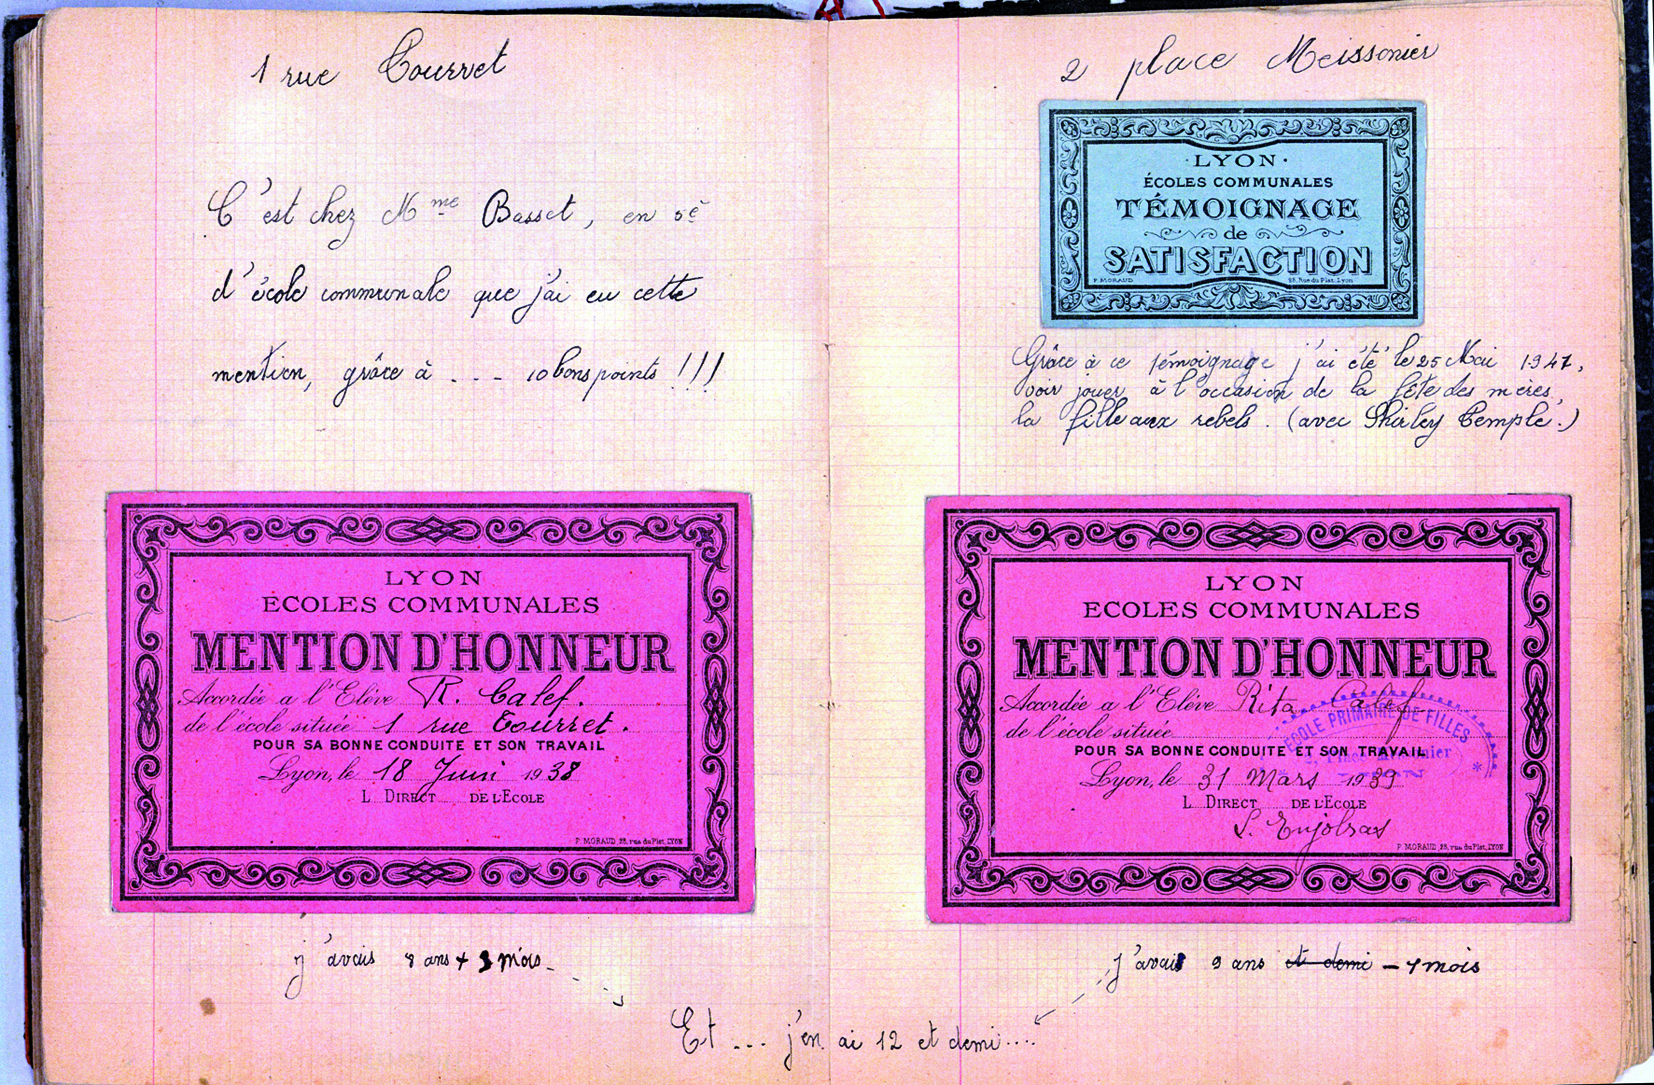 1 rue Tourret
C'est chez Mme Basset, en 5è
d'école communale que j'ai eu cette
mention, grâce à . _ _ 10 bons points !!!
LYON
ECOLES COMMUNALES
MENTION D'HONNEUR
Accordée a l'Elève R. Calef.
de l'école située 1 rue Tourret.
POUR SA BONNE CONDUITE ET SON TRAVAIL
Lyon, le 18 Juin 1938
L DIRECT DE L'ECOLE
P. MORAUD, 25, rue du Plat, LYON
j'avais 8 ans + 3 mois _
2 place Meissonier
· LYON ·
ÉCOLES COMMUNALES
TÉMOIGNAGE
de
SATISFACTION
P. MORAUD 25, Rue du Plat, Lyon
Grâce à ce témoignage j'ai été le 25 Mai 1941,
voir jouer à l'occasion de la fête des mères,
la fille aux rebels. (avec Shirley Temple.)
LYON
ECOLES COMMUNALES
MENTION D'HONNEUR
Accordée a l'Elève Rita Calef
de l'école située
ECOLE PRIMAIRE DE FILLES
POUR SA BONNE CONDUITE ET SON TRAVAIL
Lyon, le 31 Mars 1939
L DIRECT DE L'ECOLE
S. Enjolras
P. MORAUD, 25, rue du Plat, LYON
j'avais 9 ans et demi - 1 mois
Et ... j'en ai 12 et demi....